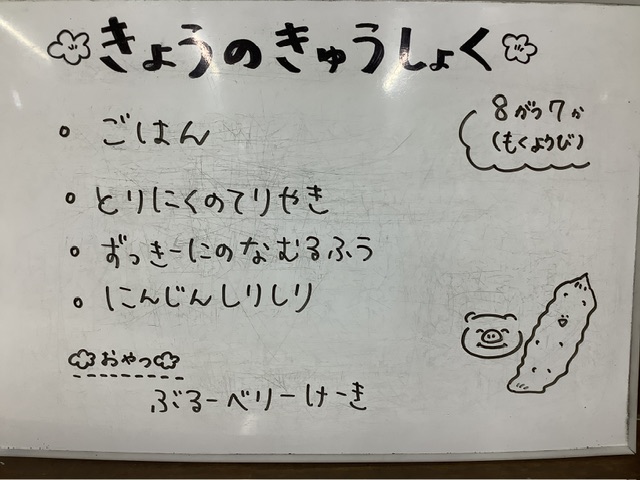 きょうのきゅうしょく
8がつ7か
(もくようび)
・ごはん
・とりにくのてりやき
・ずっきーにのなむるふう
・にんじんしりしり
おやつ
ぶるーベリーけーき